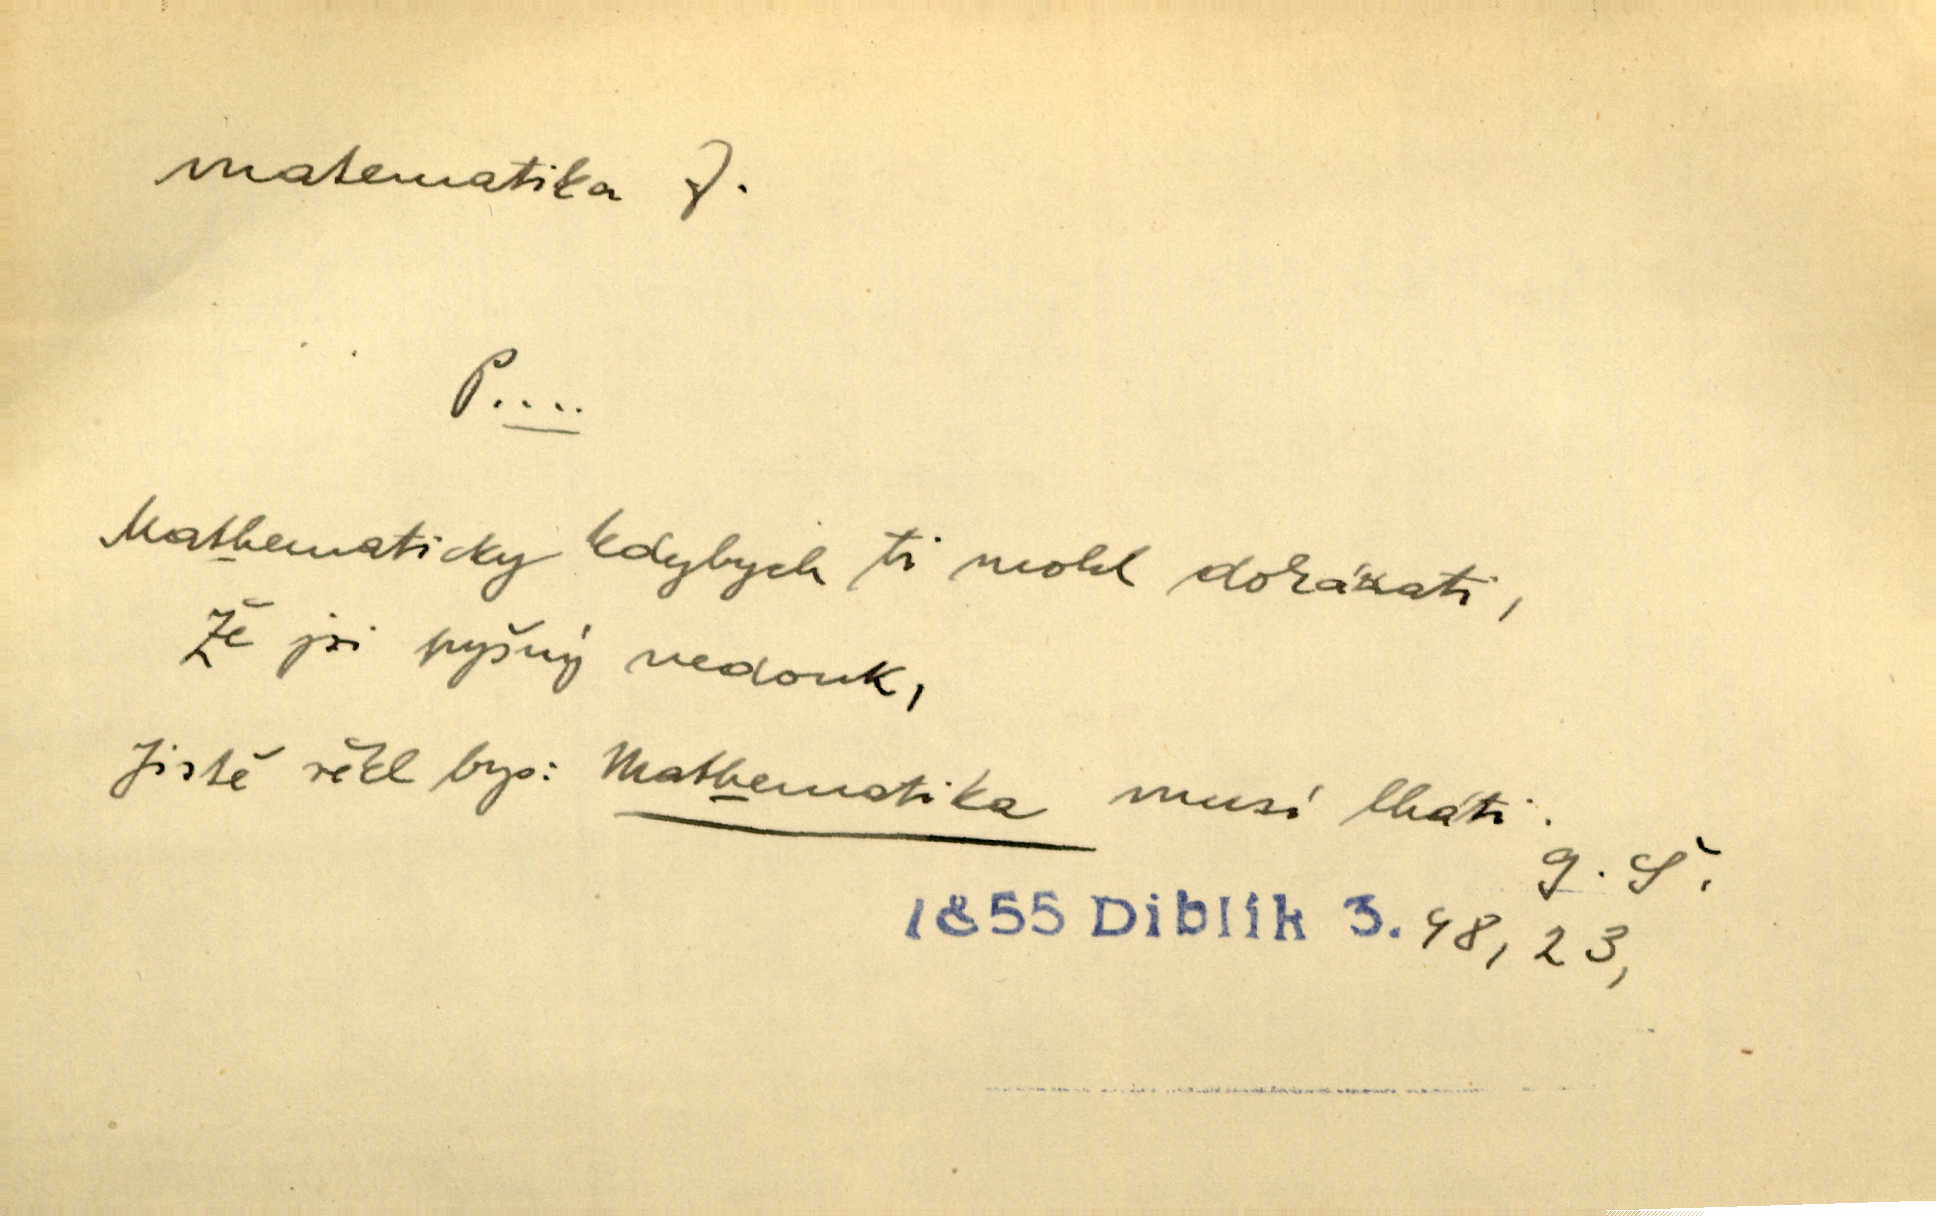 matematika J.
P....
Mathematicky kdybych ti mohl dokázati,
Že jsi pyšný nedouk,
Jistě řekl bys: Mathematika musí lháti.
J. Š.
1855 Diblík 3. 48, 23,